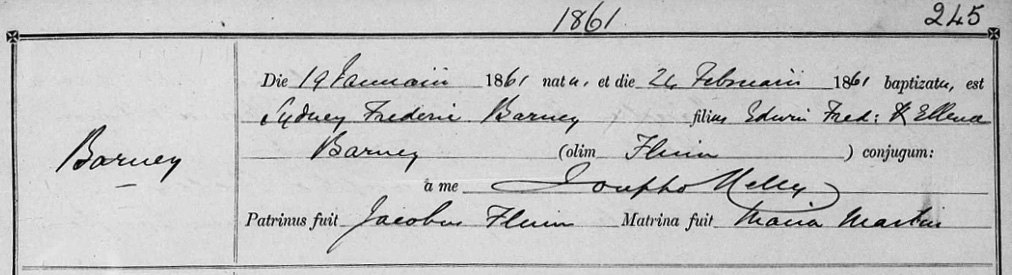 1861 245
Die 19 Januarii 1861 natu, et die 24 Februarii 1861 baptizatu, est
Sydney Frederic Barney filius Edwin Fred: & Ellena
Barney
Barney (olim ) conjugum:
à me Josepho Kelly
Patrinus fuit Jacobus Matrina fuit Maria Martin